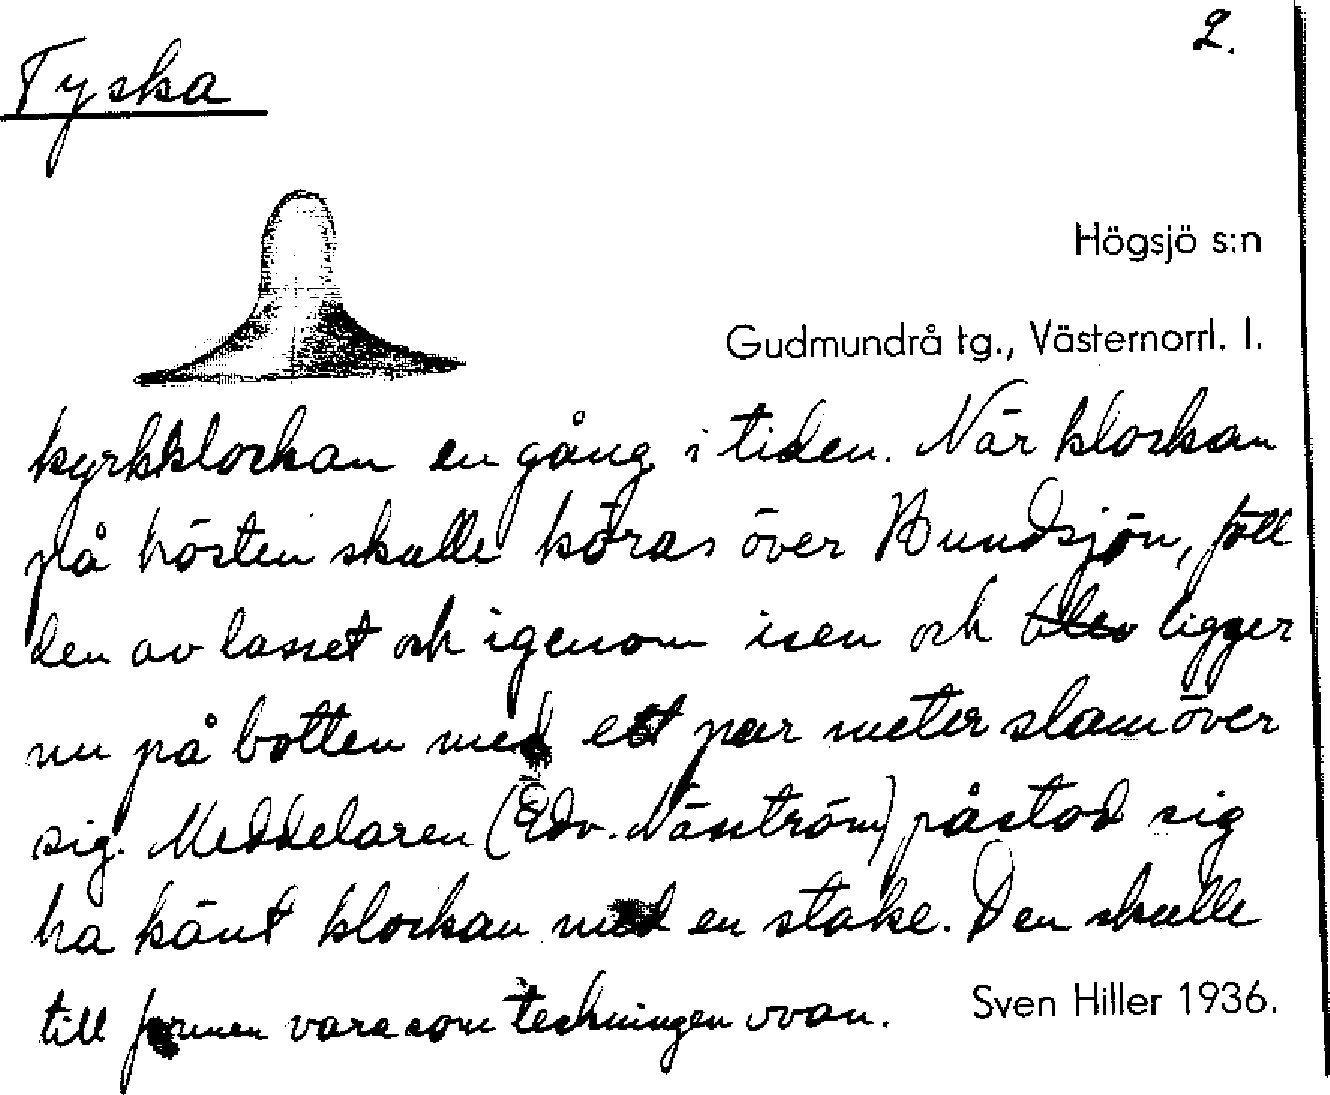 2.
Tyska
Högsjö s:n
Gudmundrå tg., Västernorrl. l.
kyrkklockan en gång i tiden. När klockan
på hösten skulle köras över Bundsjön, föll
den av lasset och igenom isen och blev ligger
nu på botten med ett par meter slam över
sig. Meddelaren (Edv. Näström) påstod sig
ha känt klockan med en stake. Den skulle
till formen vara som teckningen ovan.
Sven Hiller 1936.